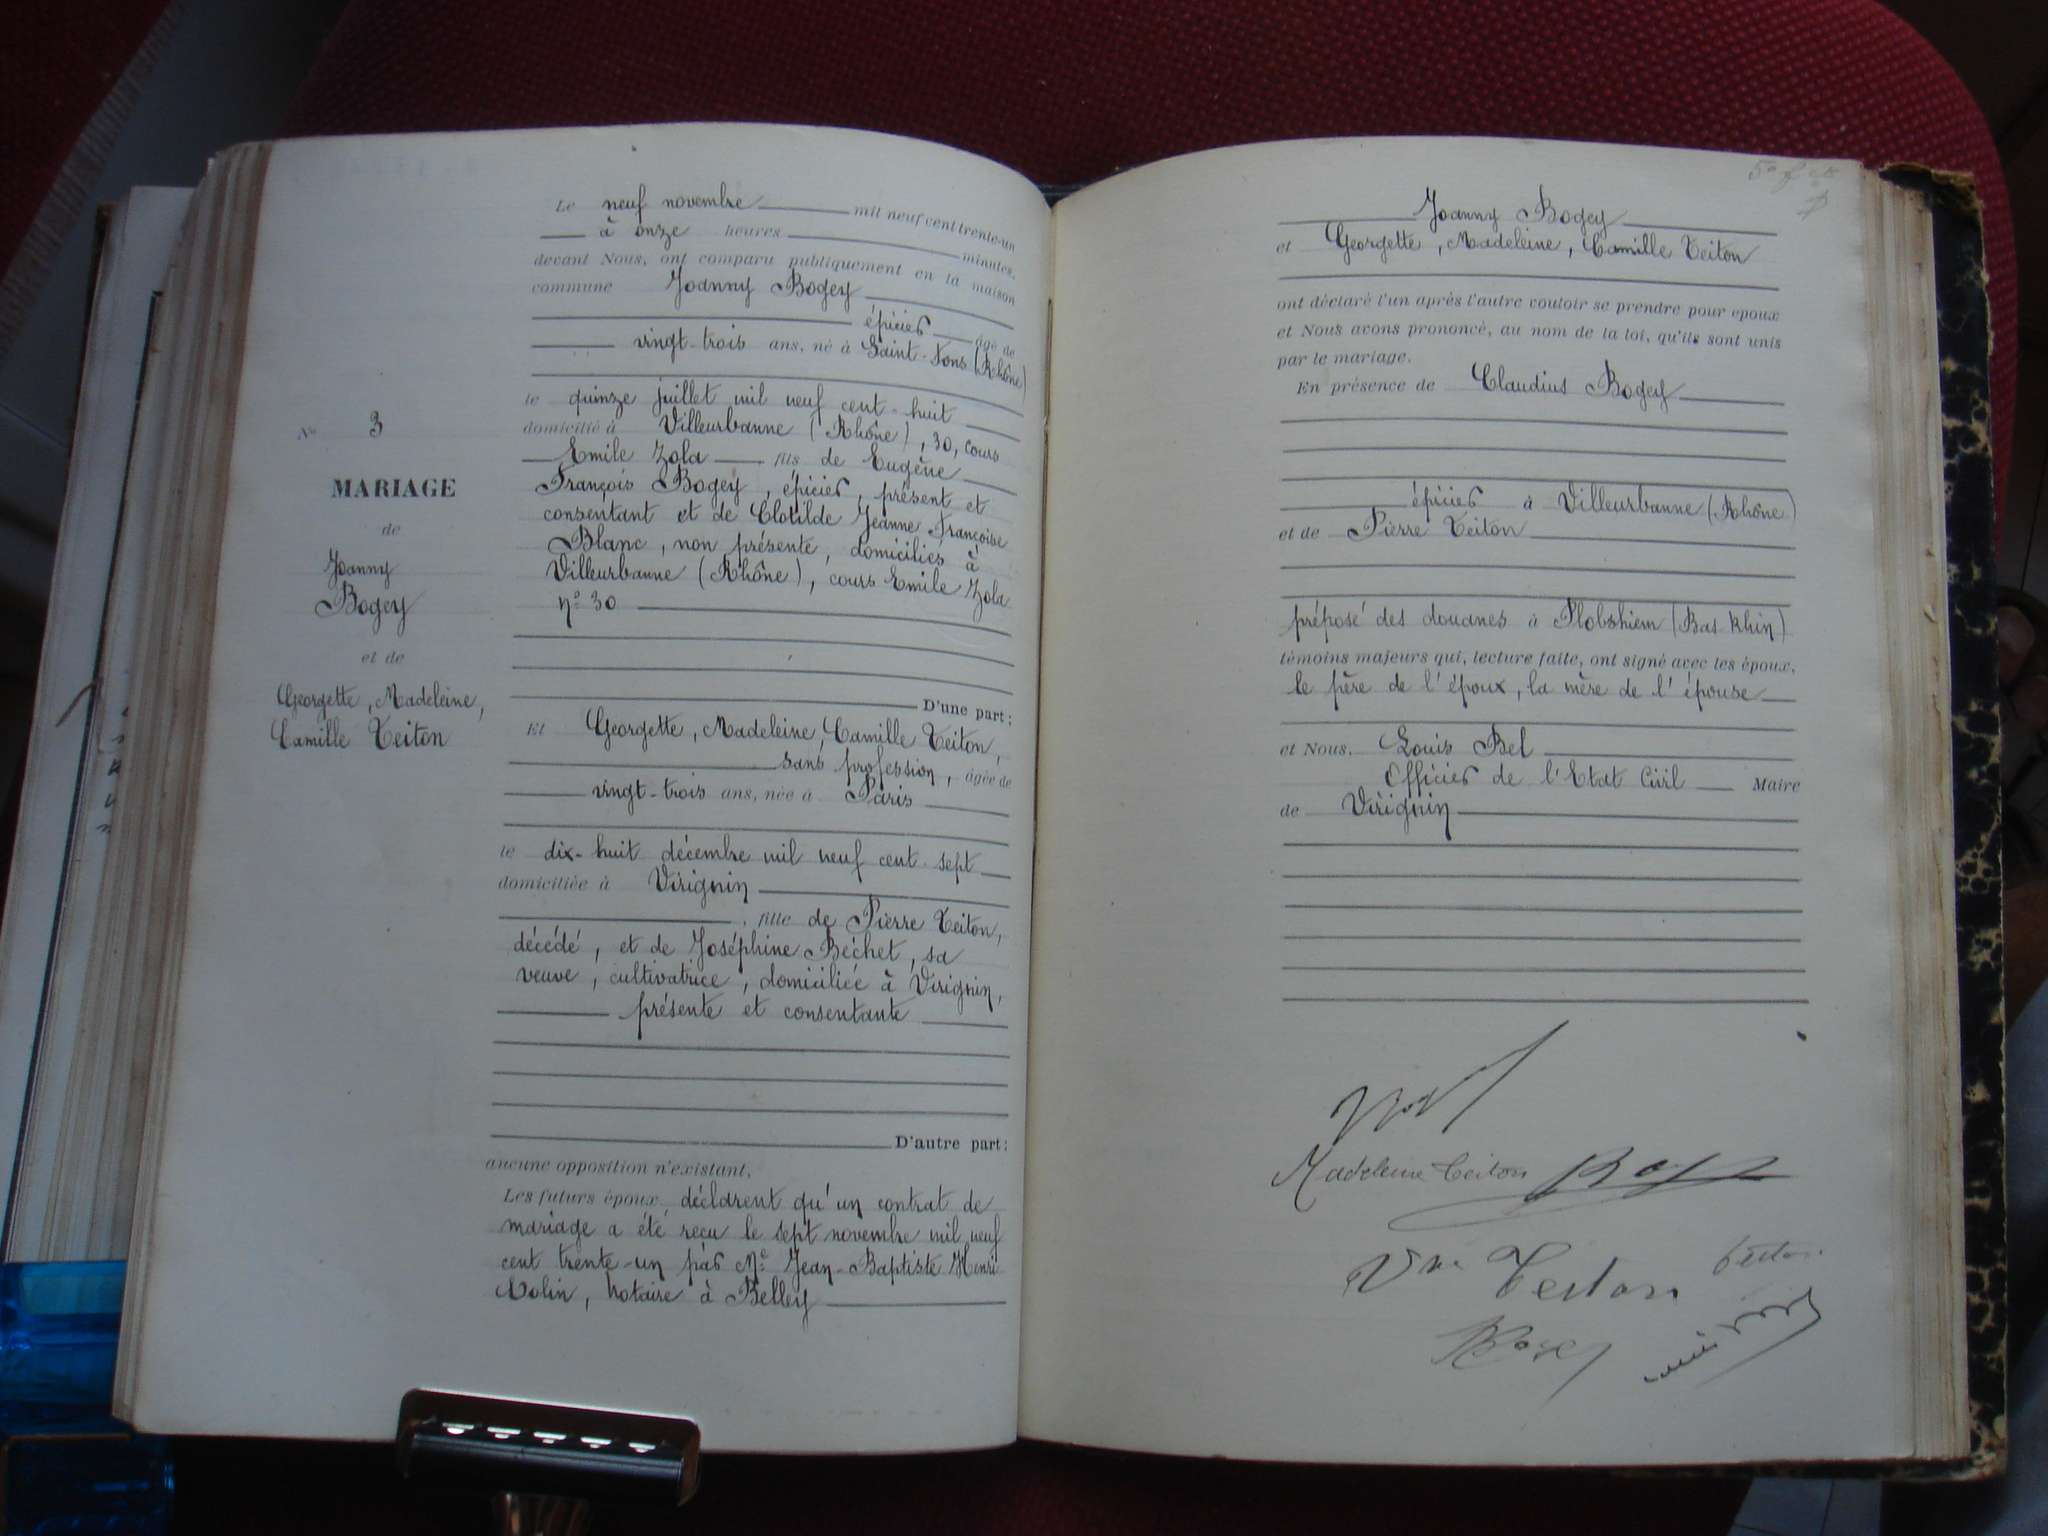 Le neuf novembre mil neuf cent trente-un
à onze heures minutes,
devant Nous, ont comparu publiquement en la maison
commune Joanny Bogey
épicier âgé de
vingt-trois ans, né à Saint-Fons (Rhône)
le quinze juillet mil neuf cent huit
domicilié à Villeurbanne (Rhône), 30, cours
Emile Zola fils de Eugène
François Bogey, épicier, présent et
consentant et de Clotilde Jeanne Françoise
Blanc, non présente, domiciliés à
Villeurbanne (Rhône), cours Emile Zola
nº 30
D'une part;
Nº 3
MARIAGE
de
Joanny
Bogey
et de
Georgette, Madeleine,
Camille Teiton
Et Georgette, Madeleine, Camille Teiton,
sans profession, âgée de
vingt-trois ans, née à Paris
le dix-huit décembre mil neuf cent sept
domiciliée à Virignin
fille de Pierre Teiton,
décédé, et de Joséphine Béchet, sa
veuve, cultivatrice, domiciliée à Virignin,
présente et consentante
D'autre part;
aucune opposition n'existant.
Les futurs époux déclarent qu'un contrat de
mariage a été reçu le sept novembre mil neuf
cent trente-un par Me Jean-Baptiste Henri
notaire à Belley
Joanny Bogey
et Georgette, Madeleine, Camille Teiton
ont déclaré l'un après l'autre vouloir se prendre pour époux
et Nous avons prononcé, au nom de la loi, qu'ils sont unis
par le mariage.
En présence de Claudius Bogey
épicier à Villeurbanne (Rhône)
et de Pierre Teiton
préposé des douanes à Plobshiem (Bas Rhin)
témoins majeurs qui, lecture faite, ont signé avec les époux,
le père de l'époux, la mère de l'épouse
et Nous, Louis Bel
Officier de l'Etat Civil Maire
de Virignin
Madeleine Teiton
Vve Teiton Teiton